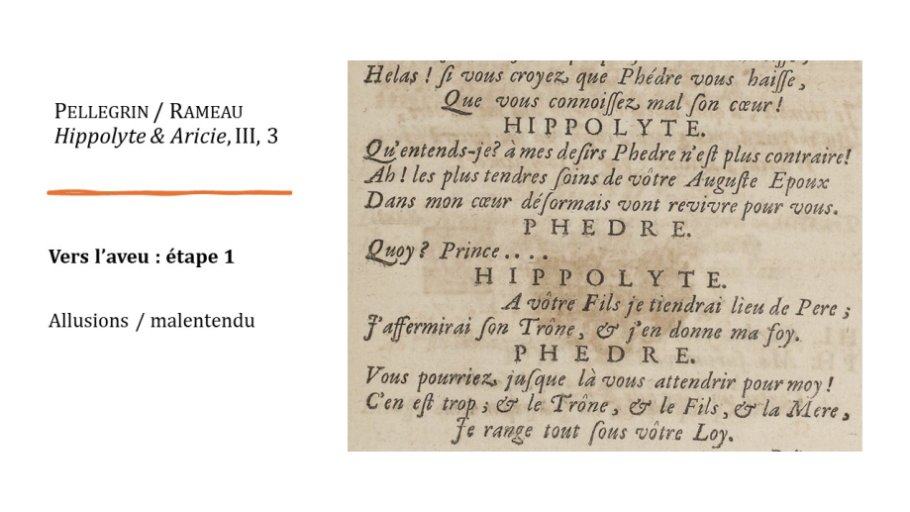 PELLEGRIN / RAMEAU
Hippolyte & Aricie, III, 3
Vers l’aveu : étape 1
Allusions / malentendu
Helas ! ſi vous croyez que Phédre vous haiſſe,
Que vous connoiſſez mal ſon cœur !
HIPPOLYTE.
Qu'entends-je? à mes deſirs Phedre n'eſt plus contraire!
Ah ! les plus tendres ſoins de vôtre Auguſte Epoux
Dans mon cœur déſormais vont revivre pour vous.
PHEDRE.
Quoy ? Prince....
HIPPOLYTE.
A vôtre Fils je tiendrai lieu de Pere ;
J'affermirai ſon Trône, & j'en donne ma foy.
PHEDRE.
Vous pourriez juſque là vous attendrir pour moy !
C'en eſt trop ; & le Trône, & le Fils, & la Mere,
Je range tout ſous vôtre Loy.